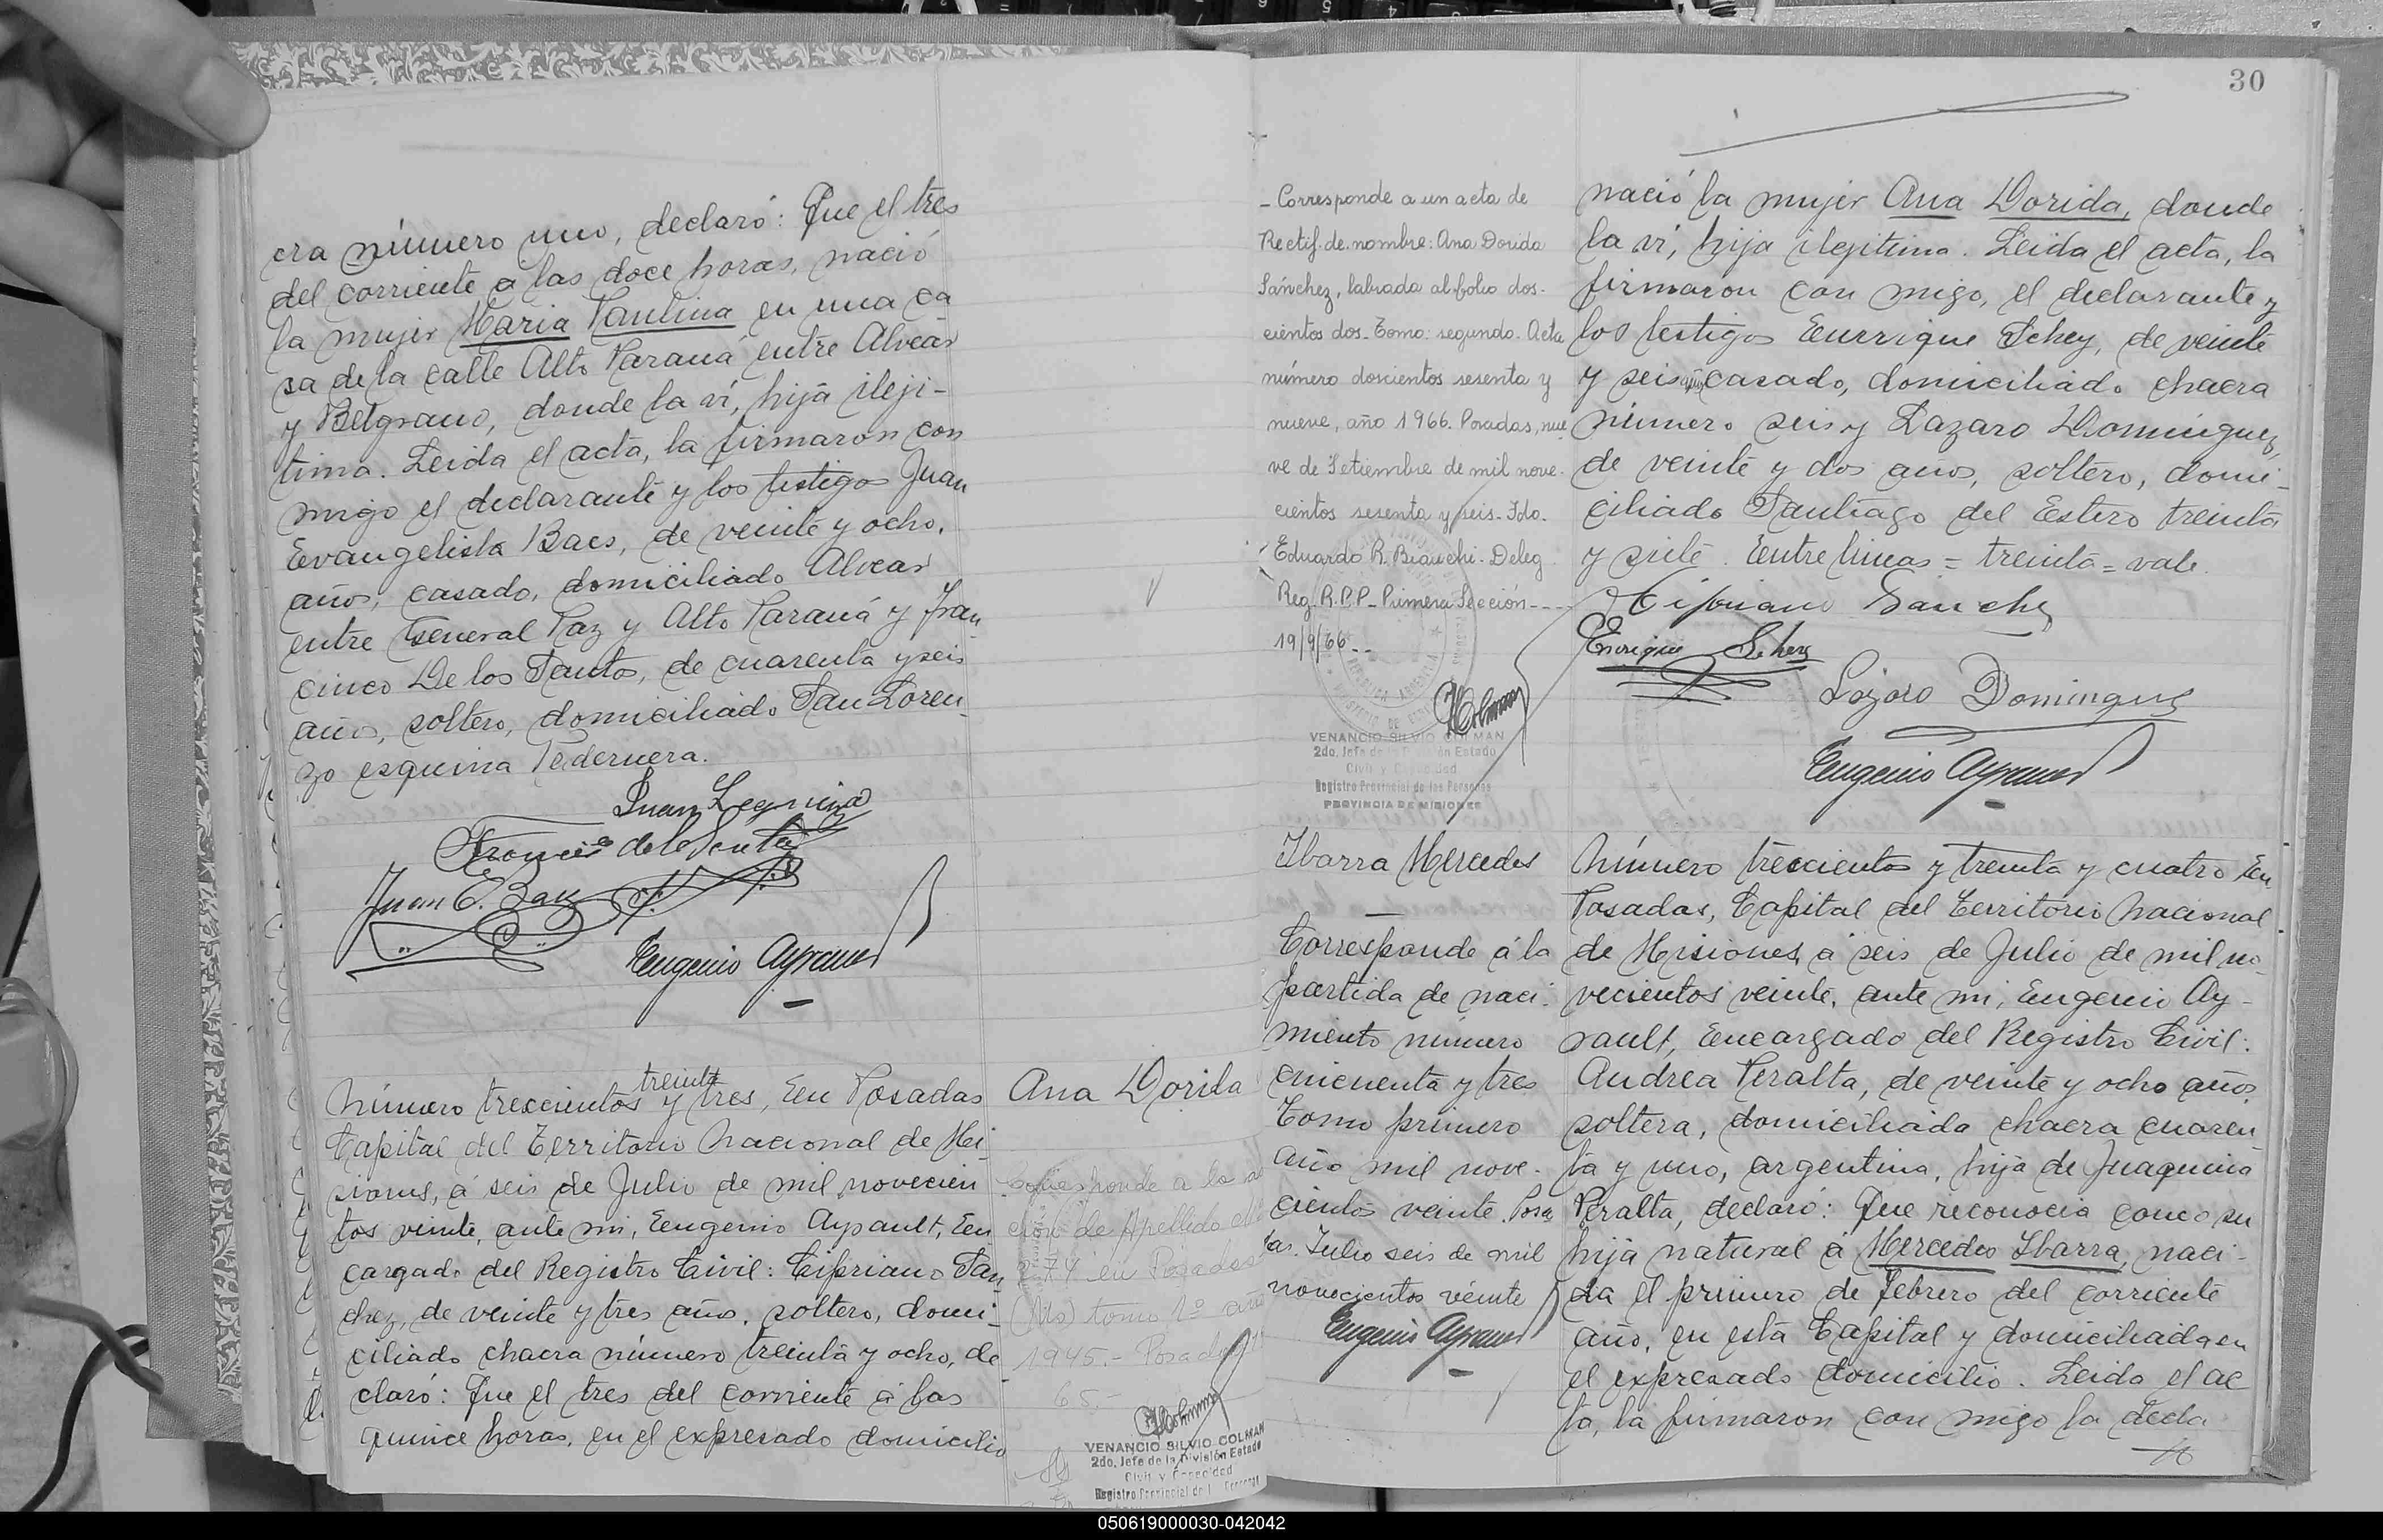 cra número uno, declaró: Que el tres
del corriente a las doce horas, nació
la mujer Maria Paulina en una ca
sa de la calle Alto Paraná entre Alvear
y Belgrano, donde la ví, hija ileji-
tima. Leida el acta, la firmaron con
migo el declarante y los testigos Juan
Evangelista Baes, de veinte y ocho,
años, casado, domiciliado Alvear
entre General Paz y Alto Paraná y Fran
cisco De los Santos, de cuarenta y seis
años, soltero, domiciliado San Loren
zo esquina Pedernera.
Juan Leguiza
Juan E. Baez
Eugenio Ayrault
treinta
Número trescientos y tres, En Posadas
Capital del Territorio Nacional de Mi-
siones, á seis de Julio de mil novecien
tos veinte, ante mi, Eugenio Ayrault, En
cargado del Registro Civil: Cipriano San
chez, de veinte y tres años, soltero, domi-
ciliado chacra número treinta y ocho, de
claró: Que el tres del corriente á las
quince horas, en el expresado domicilio
Ana Dorida
Corresponde a la
de Apellido
en Posadas
tomo 1º
1945.- Posadas
65.-
VENANCIO SILVIO COLMAN
2do. Jefe de la División Estado
Civil y Capacidad
Registro Provincial de l
30
- Corresponde a un acta de
Rectif. de nombre: Ana Dorida
Sánchez, labrada al folio dos-
cientos dos. Tomo: segundo. Acta
número doscientos sesenta y
nueve, año 1966. Posadas, nue
ve de Setiembre de mil nove-
cientos sesenta y seis. Fdo.
Eduardo R. Bianchi - Deleg.
Reg. R.P.P - Primera Sección ---
19/9/66 --
VENANCIO SILVIO COLMAN
2do. Jefe de la División Estado
Civil y Capacidad
Registro Provincial de las Personas
PROVINCIA DE MISIONES
nació la mujer Ana Dorida, donde
la ví, hija ilegitima. Leida el acta, la
firmaron con migo, el declarante y
los testigos Enrrique Schey, de veinte
y seis años casado, domiciliado chacra
número seis y Lazaro Dominguez,
de veinte y dos anos, soltero, domi-
ciliado Santiago del Estero treinta
y siete. Entre lineas = treinta = vale.
Cipriano Sanchez
Enrique Schey
Lazaro Dominguez
Eugenio Ayrault
Ibarra Mercedes
Corresponde á la
partida de naci-
miento número
cincuenta y tres
Tomo primero
año mil nove-
cientos veinte. Posa
das. Julio seis de mil
novecientos veinte
Eugenio Ayrault
Número trescientos y treinta y cuatro En
Posadas, Capital del Territorio Nacional
de Misiones, á seis de Julio de mil no-
vecientos veinte, ante mi, Eugenio Ay-
rault, Encargado del Registro Civil:
Andrea Peralta, de veinte y ocho años,
soltera, domiciliada chacra cuaren
ta y uno, argentina, hija de Juaquina
Peralta, declaró: Que reconocia como su
hija natural á Mercedes Ibarra, naci-
da el primero de febrero del corriente
año, en esta Capital y domiciliada en
el expresado domicilio. Leida el ac
ta, la firmaron con migo la decla
050619000030-042042